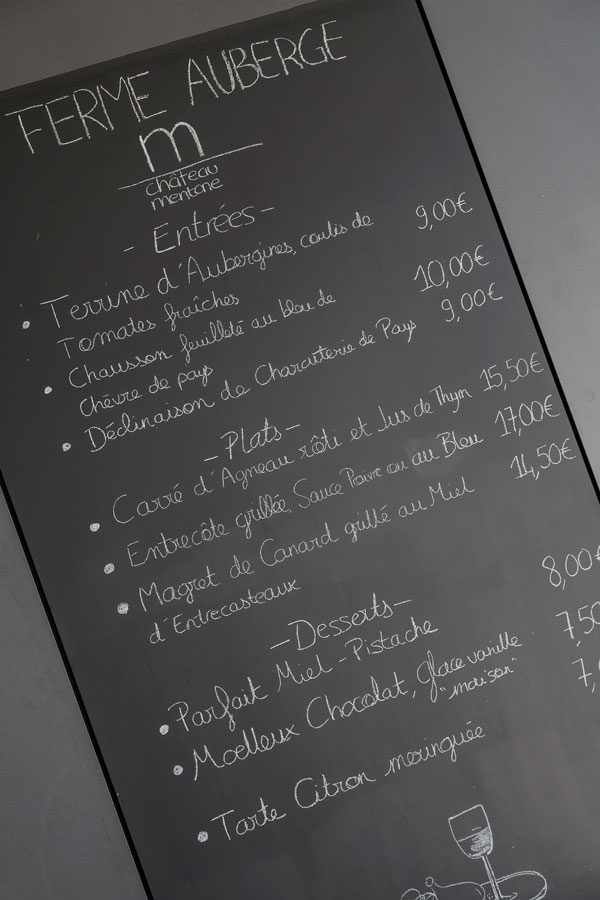 FERME AUBERGE
m
château
mentone
- Entrées -
• Terrine d'Aubergines, coulis de 9,00€
Tomates fraîches
• Chausson feuilleté au bleu de 10,00€
Chèvre de pays
• Déclinaison de Charcuterie de Pays 9,00€
- Plats -
• Carré d'Agneau rôti et Jus de Thym 15,50€
• Entrecôte grillée, Sauce Poivre ou au Bleu 17,00€
• Magret de Canard grillé au Miel 14,50€
d'Entrecasteaux
- Desserts -
• Parfait Miel - Pistache 8,00€
• Moelleux Chocolat, glace vanille 7,50
"maison"
• Tarte Citron meringuée 7,